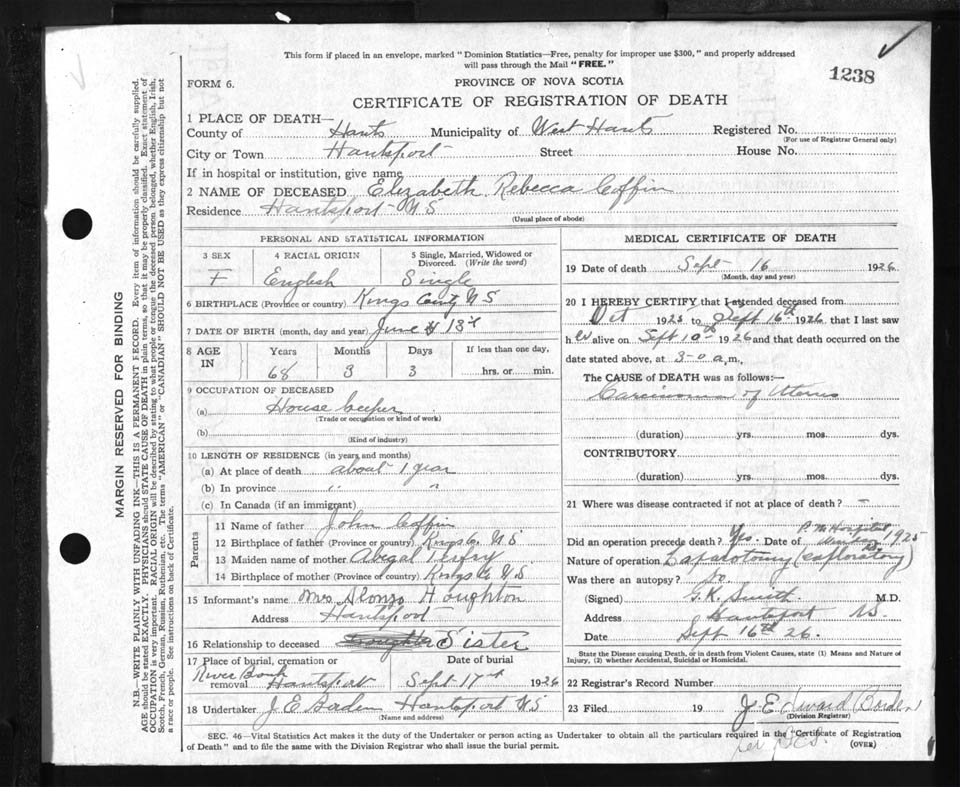 This form if placed in an envelope, marked "Dominion Statistics—Free, penalty for improper use $300," and properly addressed
will pass through the Mail "FREE."
1238
FORM 6.
PROVINCE OF NOVA SCOTIA
CERTIFICATE OF REGISTRATION OF DEATH
1 PLACE OF DEATH—
County of Hants Municipality of West Hants Registered No.
(For use of Registrar General only)
City or Town Hantsport Street House No.
If in hospital or institution, give name
2 NAME OF DECEASED Elizabeth Rebecca Coffin
Residence Hantsport N S
(Usual place of abode)
PERSONAL AND STATISTICAL INFORMATION
3 SEX
F
4 RACIAL ORIGIN
English
5 Single, Married, Widowed or
Divorced. (Write the word)
Single
6 BIRTHPLACE (Province or country) Kings County N S
7 DATE OF BIRTH (month, day and year) June 13
8 AGE
IN
Years
68
Months
3
Days
3
If less than one day,
hrs. or min.
9 OCCUPATION OF DECEASED
(a) House keeper
(Trade or occupation or kind of work)
(b)
(Kind of industry)
10 LENGTH OF RESIDENCE (in years and months)
(a) At place of death about 1 year
(b) In province " "
(c) In Canada (if an immigrant)
Parents
11 Name of father John Coffin
12 Birthplace of father (Province or country) Kings Co. N S
13 Maiden name of mother Abigal
14 Birthplace of mother (Province or country) Kings Co N S
15 Informant's name Mrs Alonzo Houghton
Address Hantsport
16 Relationship to deceased Sister
17 Place of burial, cremation or
removal River Bank Hantsport
Date of burial
Sept 17th 1926
18 Undertaker J E Borden Hantsport N S
(Name and address)
MEDICAL CERTIFICATE OF DEATH
19 Date of death Sept 16 1926
(Month, day and year)
20 I HEREBY CERTIFY that I attended deceased from
Oct 1925 to Sept 16th 1926 that I last saw
h er alive on Sept 10th 1926 and that death occurred on the
date stated above, at 3-0 a.m.
The CAUSE OF DEATH was as follows:—
Carcinoma of Uterus
(duration) yrs. mos. dys.
CONTRIBUTORY
(duration) yrs. mos. dys.
21 Where was disease contracted if not at place of death? —
Did an operation precede death? Yes. Date of 1925
Nature of operation Laparotomy (exploratory)
Was there an autopsy? No
(Signed) G.K. Smith M.D.
Address Hantsport N.S.
Date Sept 16th 26.
State the Disease causing Death, or in death from Violent Causes, state (1) Means and Nature of
Injury, (2) whether Accidental, Suicidal or Homicidal.
22 Registrar's Record Number
23 Filed 19 J Edward Borden
(Division Registrar)
SEC. 46—Vital Statistics Act makes it the duty of the Undertaker or person acting as Undertaker to obtain all the particulars required in the "Certificate of Registration
of Death" and to file the same with the Division Registrar who shall issue the burial permit.
(OVER)
MARGIN RESERVED FOR BINDING
N.B.—WRITE PLAINLY WITH UNFADING INK—THIS IS A PERMANENT RECORD. Every item of information should be carefully supplied.
AGE should be stated EXACTLY. PHYSICIANS should STATE CAUSE OF DEATH in plain terms, so that it may be properly classified. Exact statement of
OCCUPATION is very important. RACIAL ORIGIN will be described by stating to what people or tongue the deceased person belonged, whether English, Irish,
Scotch, French, German, Russian, Ruthenian, etc. The terms "AMERICAN" or "CANADIAN" SHOULD NOT BE USED as they express citizenship but not
a race or people. See instructions on back of Certificate.